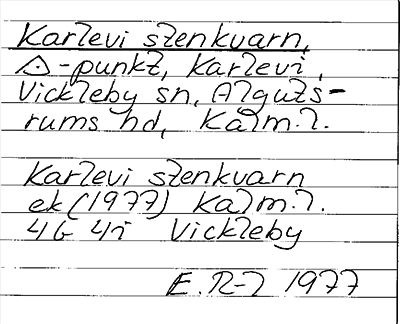 Karlevi stenkvarn,
△-punkt, Karlevi,
Vickleby sn, Alguts-
rums hd, Kalm.l.
Karlevi stenkvarn
ek (1977) Kalm.l.
4G 4i Vickleby
E. R-l 1977